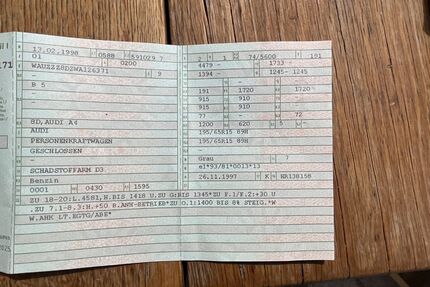 13.02.1998 0588 591029 7
01 0200
WAUZZZ8DZWA126371 9
-
B 5
-
8D, AUDI A4
AUDI
PERSONENKRAFTWAGEN
GESCHLOSSEN
-
SCHADSTOFFARM D3
Benzin
0001 0430 1595
2 1 74/5600 191
4479 - 1733 -
1394 - 1245- 1245
191 1720 1720
915 910 -
915 910 -
77 - 72
1200 620 5 -
195/65R15 89H
195/65R15 89H
-
Grau 7
e1*93/81*0013*13
26.11.1997 K HR138158
ZU 18-20:L.4581,H.BIS 1418 U.ZU G:BIS 1345*ZU F.1/F.2:+30 U
.ZU 7.1-8.3:H.+50 B.ANH-BETRIEB*ZU O.1:1400 BIS 8% STEIG.*W
W.AHK LT.EGTG/ABE*